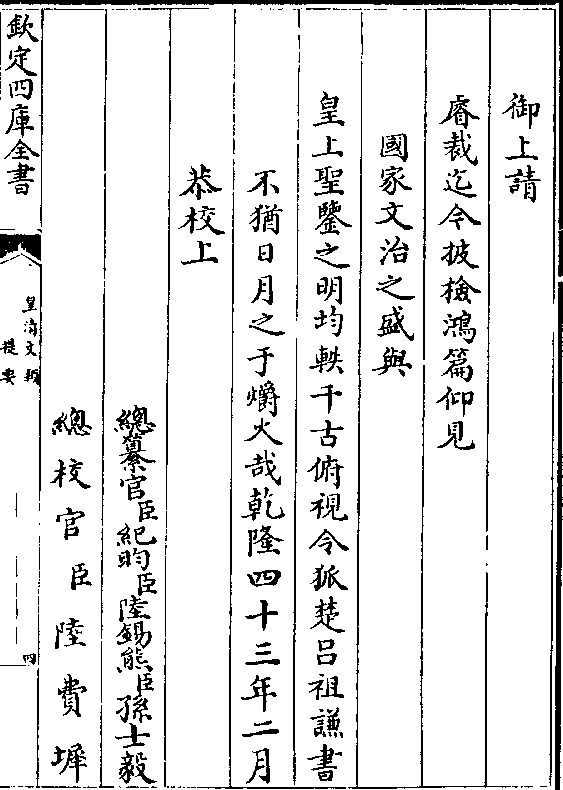 御上請
睿裁迄今披檢鴻篇仰見
國家文治之盛與
皇上聖鑒之明均軼千古俯視令狐楚呂祖謙書
不猶日月之于爝火哉乾隆四十三年二月
恭校上
總纂官臣紀昀臣陸錫熊臣孫士毅
總校官臣陸費墀
欽定四庫全書
皇清文穎
提要
四